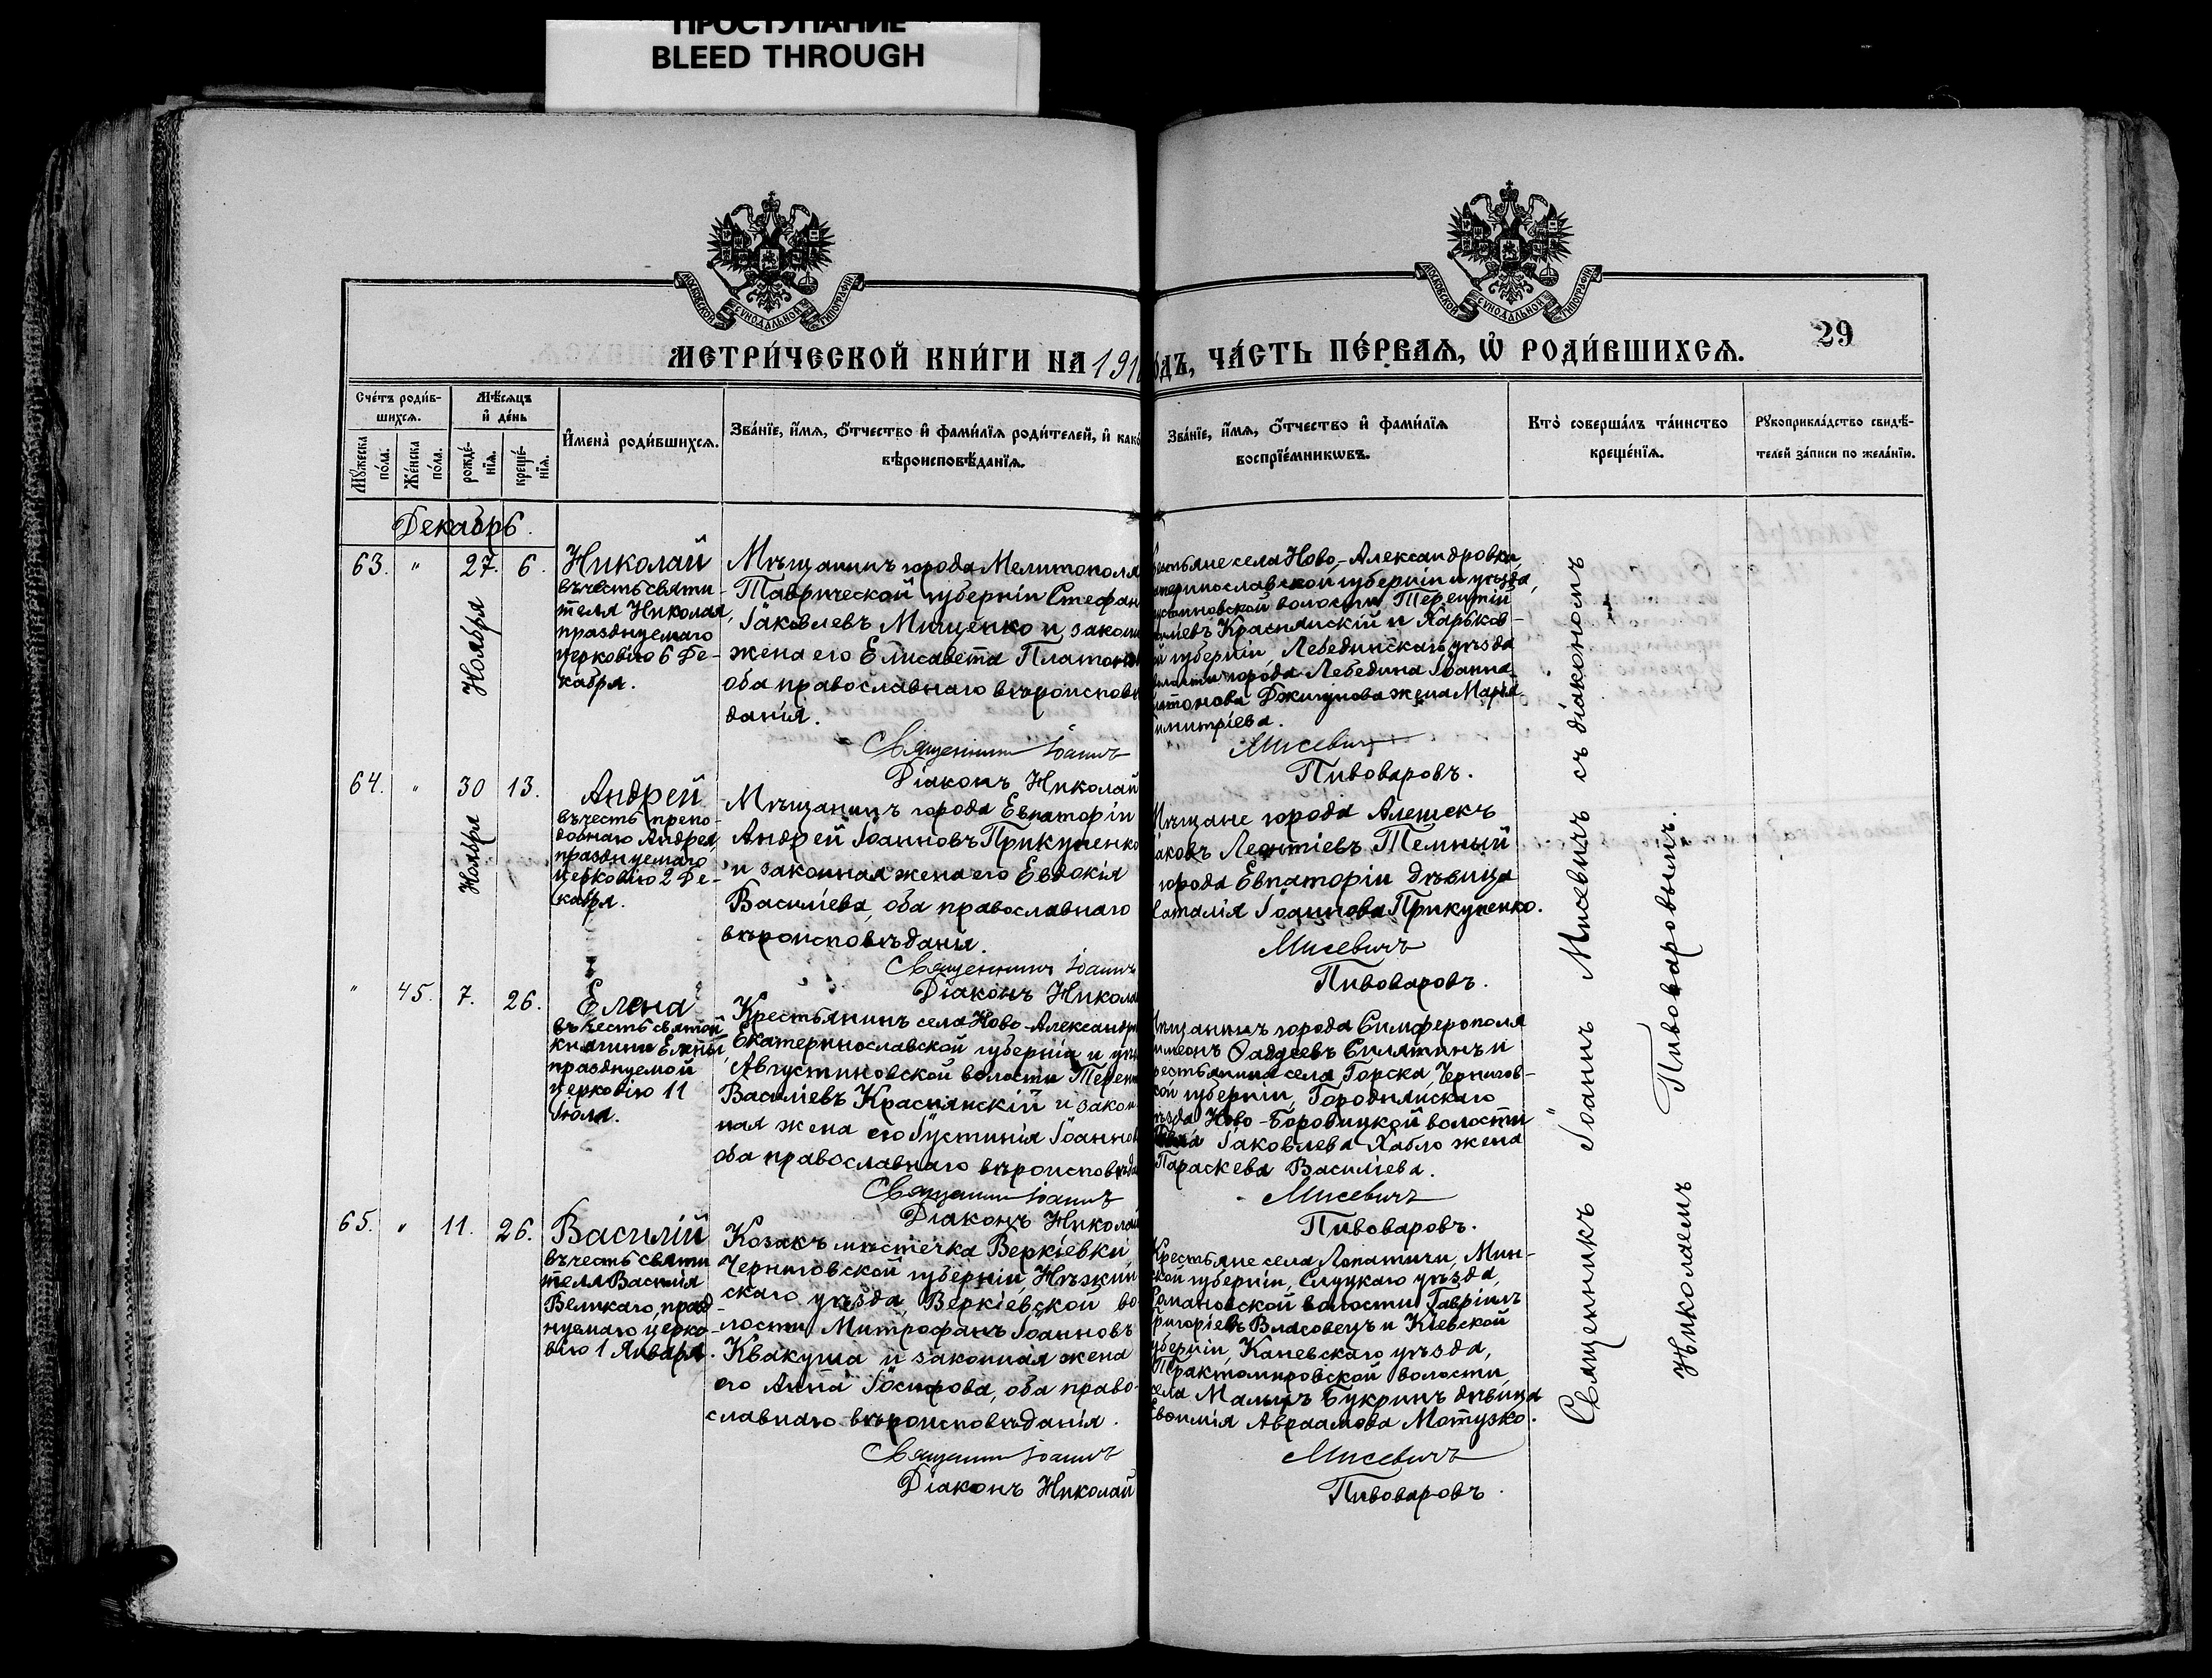 ПРОСТУПАНИЕ
BLEED THROUGH
МОСКОВСКОЙ СѴНОДАЛЬНОЙ ТИПОГРАФІИ
МОСКОВСКОЙ СѴНОДАЛЬНОЙ ТИПОГРАФІИ
29
МЕТРИ́ЧЕСКОЙ КНИ́ГИ НА 191
ОДЪ, ЧА́СТЬ ПЕ́РВАѦ, Ѡ҆ РОДИ́ВШИХСѦ.
Сче́тъ роди́в-
шихсѧ.
Мꙋ́жеска по́ла.
Же́нска по́ла.
Мѣ́сѧцъ
и҆ де́нь
рожде́-нїѧ.
креще́-нїѧ.
И҆мена̀ роди́вшихсѧ.
Зва́нїе, и҆́мѧ, ѻ҆́тчество и҆ фами́лїѧ роди́телей, и҆ како
вѣроисповѣ́данїѧ.
Зва́нїе, и҆́мѧ, ѻ҆́тчество и҆ фами́лїѧ
воспрїе́мникѡвъ.
Кто̀ соверша́лъ та́инство
креще́нїѧ.
Рꙋкоприкла́дство свидѣ́-
телей за́писи по жела́нїю.
Декабрь.
63. " 27. 6.
Ноября
Николай
въ честь святи-
теля Николая,
празднуемаго
церковію 6 Де-
кабря.
Мѣщанинъ города Мелитополя
Таврической губерніи Стефан
Іаковлевъ Мищенко и закон
жена его Елисавета Платоно
оба православнаго вѣроисповѣ
данія.
Священникъ Іоаннъ
Діаконъ Николай
естьяне села Ново-Александровки,
атеринославской губерніи и уѣзда,
густиновской волости Терентій
иліевъ Краснянскій и Харьков-
й губерніи, Лебединскаго уѣзда
города Лебедина Іоанна
атонова Джигунова жена Марія
имитріева.
Мисевичъ
Пивоваровъ.
64. " 30 13.
Ноября
Андрей
въ честь препо-
добнаго Андрея,
празднуемаго
церковію 2 Де-
кабря.
Мѣщанинъ города Евпаторіи
Андрей Іоанновъ Прикупенко
и законная жена его Евдокія
Василіева, оба православнаго
вѣроисповѣданія.
Священникъ Іоаннъ
Діаконъ Никола
Мѣщане города Алешекъ
аковъ Леонтіевъ Темный
города Евпаторіи дѣвица
Наталія Іоаннова Прикупенко.
Мисевичъ
Пивоваровъ.
" 45. 7. 26.
Елена
въ честь святой
княгини Елены
празднуемой
церковію 11
Іюля.
Крестьянинъ села Ново-Александро
Екатеринославской губерніи и уѣз
Августиновской волости Терен
Василіевъ Краснянскій и закон
ная жена его Іустинія Іоаннов
оба православнаго вѣроисповѣда
Священникъ Іоаннъ
Діаконъ Николай
Мѣщанинъ города Симферополя
имеонъ Фаддеевъ Силятинъ и
рестьянина села Горска, Чернигов-
кой губерніи, Городнянскаго
ѣзда Ново-Боровицкой волости
Іаковлева Хабло жена
Параскева Василіева.
Мисевичъ
Пивоваровъ.
65. " 11. 26.
Василій
въ честь святи
теля Василія
Великаго, празд
нуемаго церко-
вію 1 Января.
Козакъ мѣстечка Веркіевки
Черниговской губерніи, Нѣжин
скаго уѣзда, Веркіевской во
лости Митрофанъ Іоанновъ
Квакуша и законная жена
его Анна Іосифова, оба право-
славнаго вѣроисповѣданія.
Священникъ Іоаннъ
Діаконъ Николай
Крестьяне села Лопатичи, Мин-
ской губерніи, Слуцкаго уѣзда,
Романовской волости Гавріилъ
Григоріевъ Власовецъ и Кіевской
уберніи, Каневскаго уѣзда,
Трактомировской волости,
села Малый Букринъ дѣвица
Евфимія Авраамова Мотузко.
Мисевичъ
Пивоваровъ.
Священникъ Іоаннъ Мисевичъ съ діакономъ
Николаемъ Пивоваровымъ.